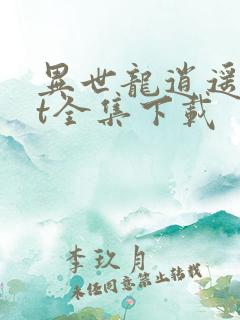 異世龍逍遥
t全集下載
李玖月
未经同意禁止转载